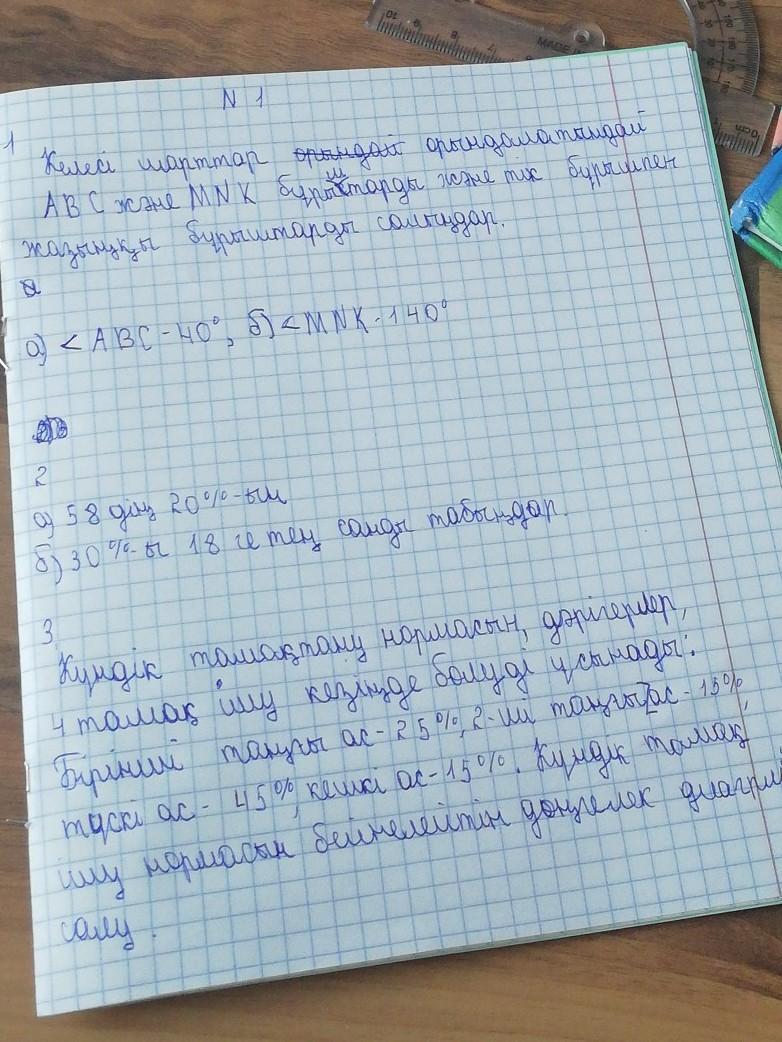 N 1
1
Келесі шарттар орындай орындалатындай
ABC және MNK бұрыштарды және тік бұрышпен
жазыңқы бұрыштарды салыңдар.
а) < ABC - 40°, б) < MNK - 140°
2
а) 58 дің 20%-ын
б) 30%-ы 18 ге тең санды табыңдар.
3
Күндік тамақтану нормасын, дәрігерлер,
4 тамақ ішу кезінде бөлуді ұсынады:
Бірінші таңғы ас - 25%, 2-ші таңғы ас - 15%,
түскі ас - 45%, кешкі ас - 15%. Күндік тамақ
ішу нормасын бейнелейтін дөңгелек диаграм
салу.
MADE IN